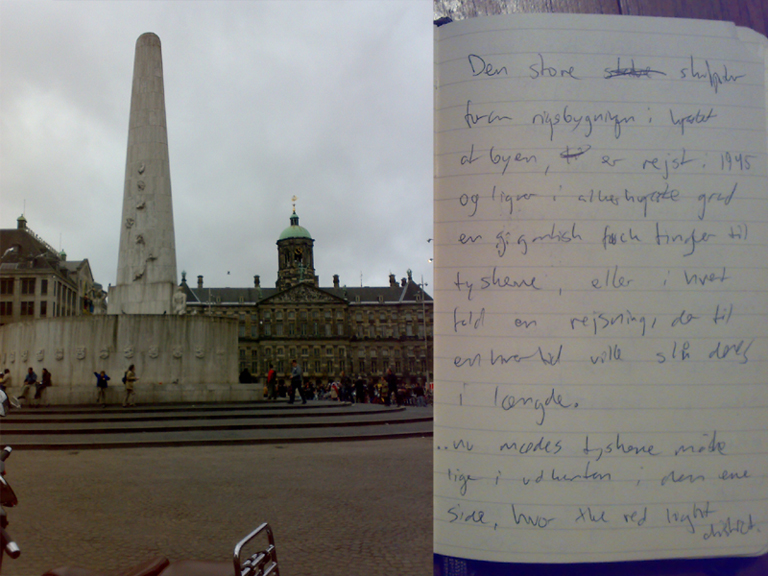 Den store skulptur
foran rigsbygningen i hjertet
af byen, er rejst i 1945
og ligner i allerhøjeste grad
en gigantisk fuck finger til
tyskerne, eller i hvert
fald en rejsning, der til
enhver tid ville slå deres
i længde.
..nu mødes tyskerne måske
lige i udkanten i den ene
side, hvor the red light
district.